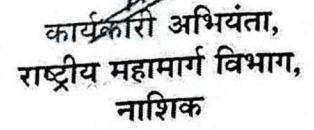 कार्यकारी अभियंता,
राष्ट्रीय महामार्ग विभाग,
नाशिक